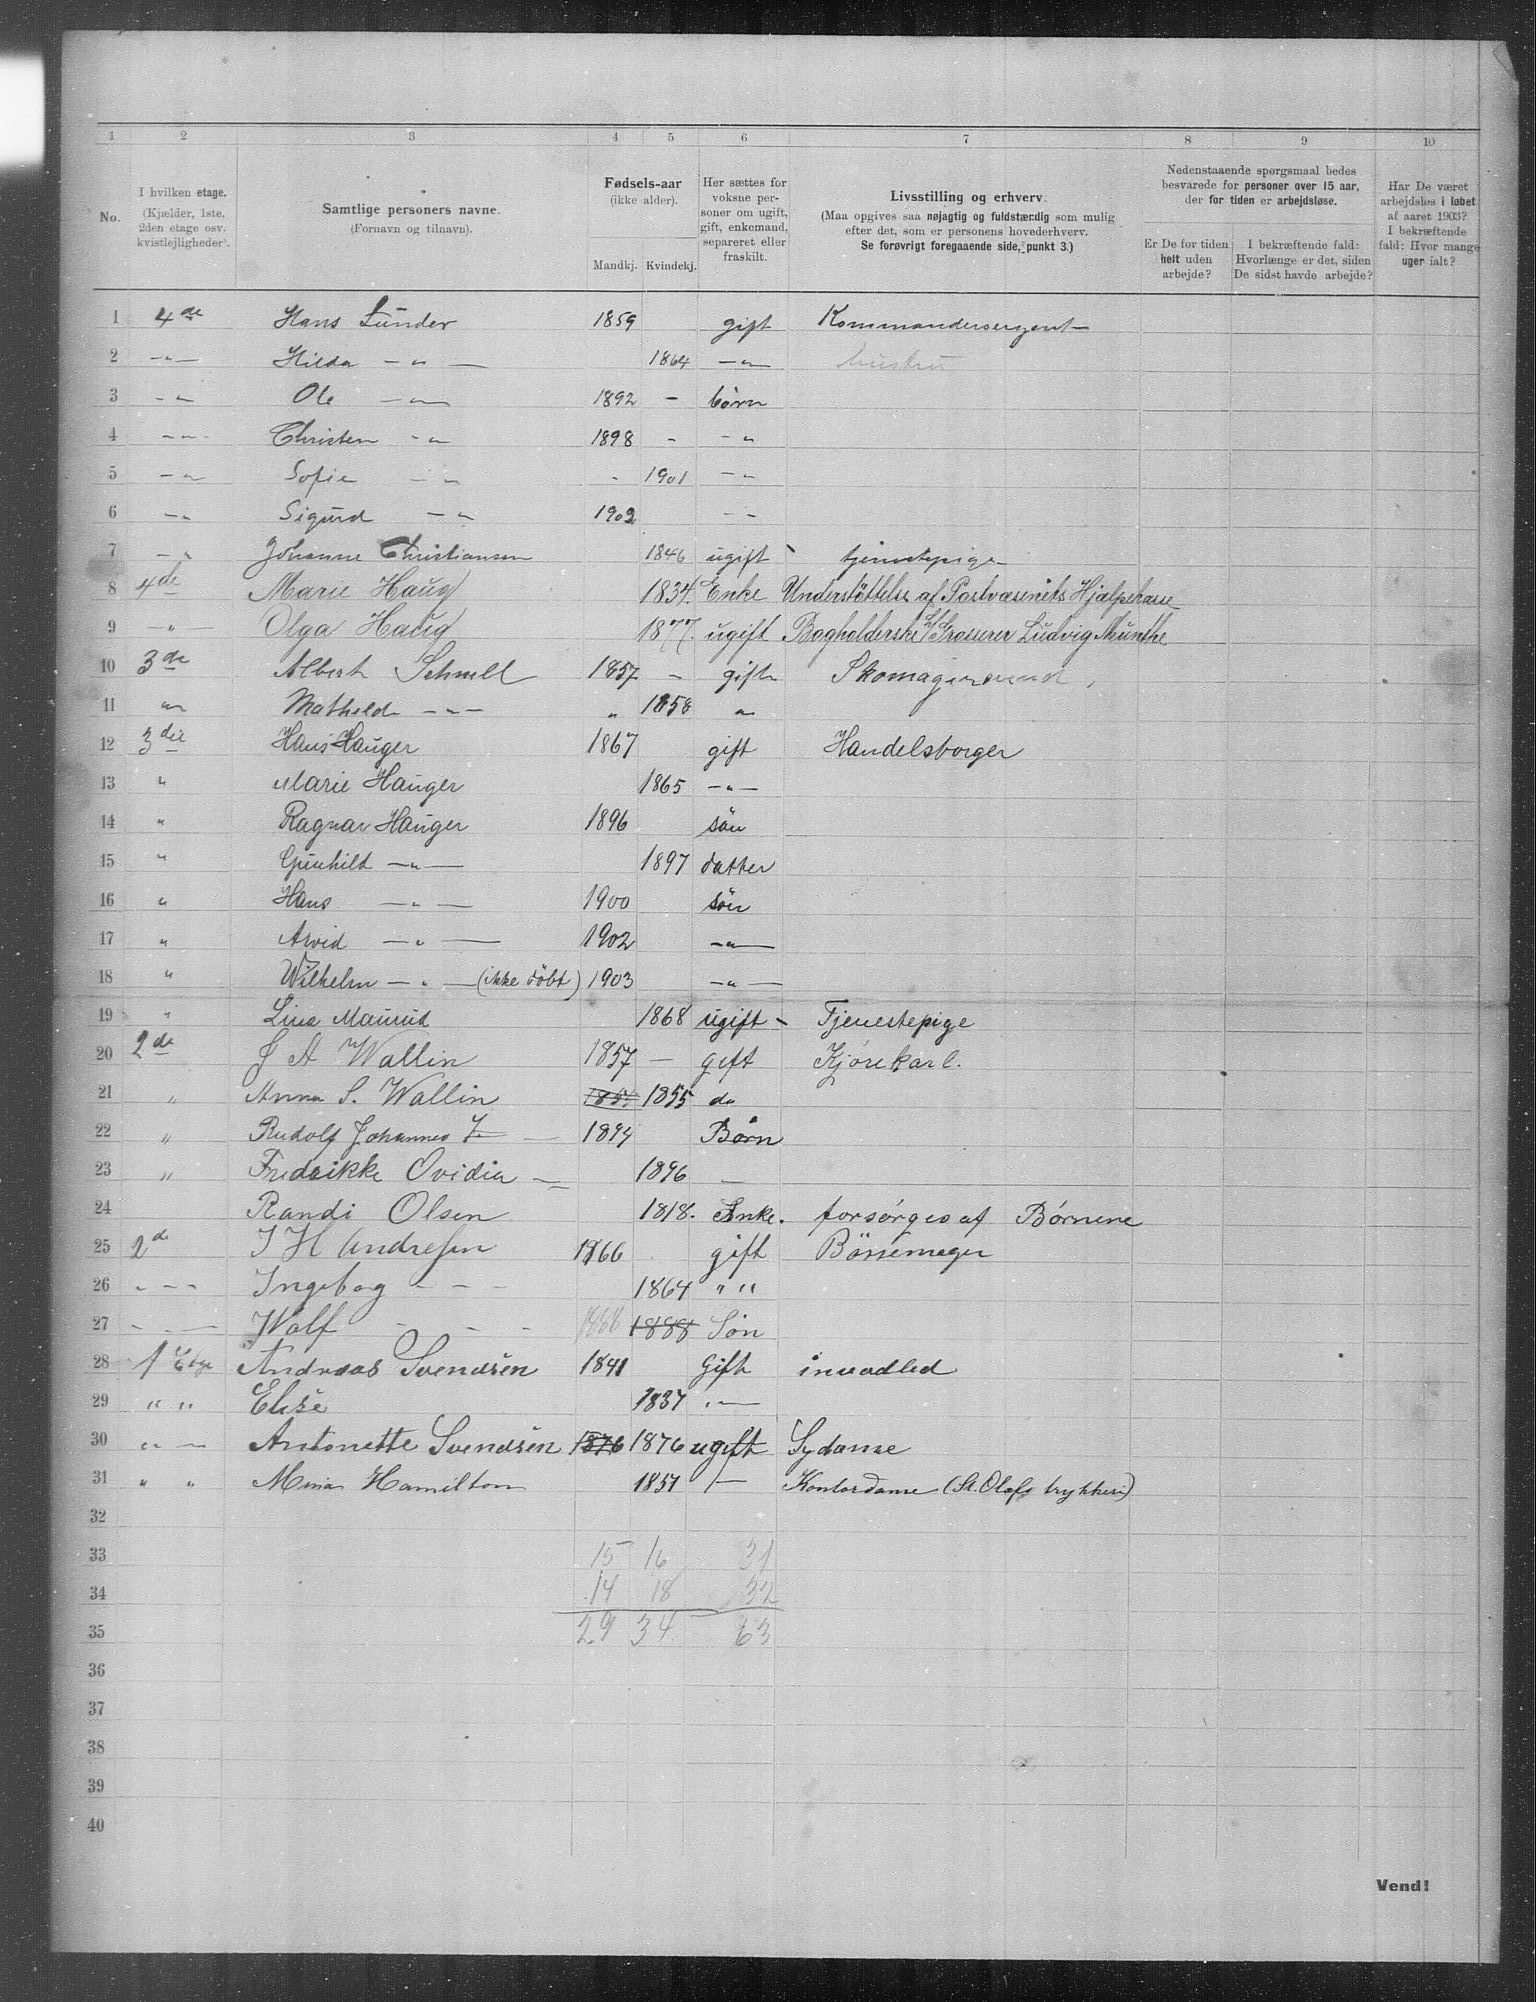 1 2 3 4 5 6 7 8 9 10
No.
I hvilken etage.
(Kjælder, 1ste,
2den etage osv.
kvistleiligheder).
Samtlige personers navne.
(Fornavn og tilnavn).
Fødsels-aar
(ikke alder).
Mandkj. Kvindekj.
Her sættes for
voksne per-
soner om ugift,
gift, enkemand,
separeret eller
fraskilt.
Livsstilling og erhverv.
(Maa opgives saa nøjagtig og fuldstærdig som mulig
efter det, som er personens hovederhverv.
Se forøvrigt foregaaende side, punkt 3.)
Nedenstaaende spørgsmaal bedes
besvarede for personer over 15 aar,
der for tiden er arbejdsløse.
Er De for tiden
helt uden
arbejde?
I bekræftende fald:
Hvorlænge er det, siden
De sidst havde arbejde?
Har De været
arbejdsløs i løbet
af aaret 1903?
I bekræftende
fald: Hvor mange
uger ialt?
1 4de Hans Lunder 1859 gift Kommandersergent
2 -"- Hilda -"- 1864 -"- hustru
3 -"- Ole -"- 1892 - børn
4 -"- Christen -"- 1898 - -"-
5 -"- Sofie -"- - 1901 -"-
6 -"- Sigurd -"- 1902 -"-
7 -"- Johanne Christiansen 1846 ugift tjenestepige
8 4de Marie Haug 1834. Enke Understøttelse af Postvæsenets Hjælpekasse
9 -"- Olga Haug 1877. ugift Bogholderske Grosserer Ludvig Munthe
10 3de Albert Schnell 1857 - gift Skomagersvend
11 " Mathilde -"- " 1858 "
12 3die Hans Hauger 1867 gift Handelsborger
13 " Marie Hauger 1865 -"-
14 " Ragnar Hauger 1896 søn
15 " Gunhild -"- 1897 datter
16 " Hans -"- 1900 søn
17 " Arvid -"- 1902 -"-
18 " Wilhelm -"- (ikke døbt) 1903 -"-
19 " Lina Maurud 1868 ugift - Tjenestepige
20 2de J A Wallin 1857 - gift Kjørekarl.
21 " Anna S. Wallin 1855 do
22 " Rudolf Johannes - 1894 Børn
23 " Fredrikke Ovidia - 1896 -
24 Randi Olsen 1818. Enke. forsørges af Børnene
25 2d J H Andresen 1866 gift Børsemager
26 - - - Ingebog - - - 1864 " "
27 - - - Wolf - - - 1888 1888 Søn
28 1 Etge Andreas Svendsen 1841 Gift invadled
29 " " Elise 1837 "-
30 " - Antonette Svendsen 1876 1876 ugift Sydame
31 " " Mina Hamilton 1851 - Kontordame (St. Olafs trykkeri)
32
33 15 16 31
34 14 18 32
35 29 34 63
36
37
38
39
40
Vend!